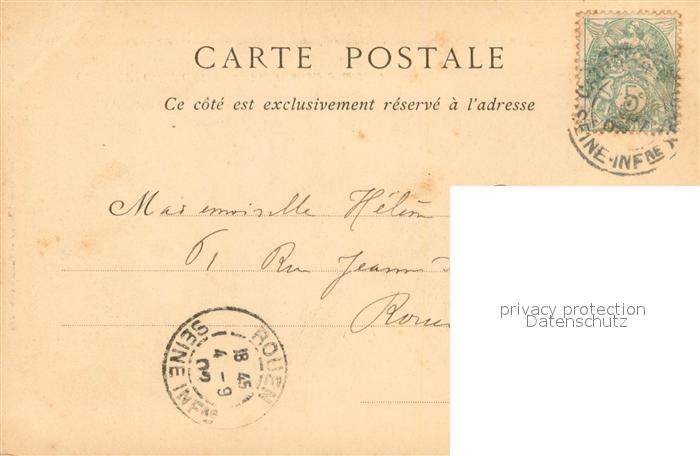 CARTE POSTALE
Ce côté est exclusivement réservé à l'adresse
5c
SEINE-INFRE
Mademoiselle Hélèn
61 Rue Jeanne
Roue
privacy protection
Datenschutz
ROUEN
18 45
4 - 9
03
SEINE INFRE